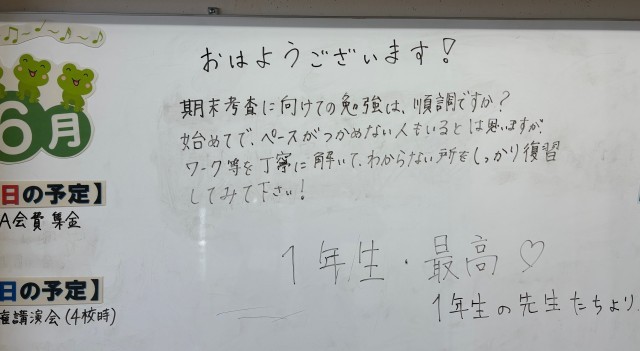 おはようございます!
期末考査に向けての勉強は、順調ですか?
始めてで、ペースがつかめない人もいるとは思いますが、
ワーク等を丁寧に解いて、わからない所をしっかり復習
してみて下さい!
1年生・最高♡
1年生の先生たちより
6月
日の予定】
A会費 集金
日の予定】
講演会(4校時)